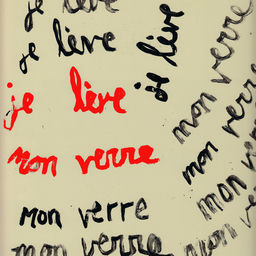 je lève
je lève
je lève
je lève
mon verre
mon verre
mon verre
mon verre
mon verre
mon verre
mon verre
mon